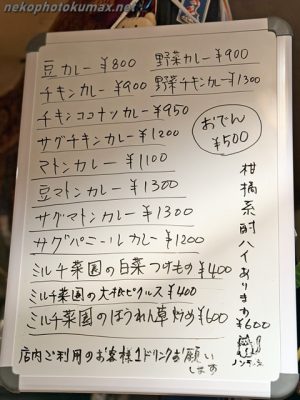 nekophotokumax.net
豆カレー ¥800 野菜カレー ¥900
チキンカレー ¥900 野菜チキンカレー ¥1300
チキンココナツカレー ¥950
サグチキンカレー ¥1200
おでん
¥500
マトンカレー ¥1100
豆マトンカレー ¥1300
サグマトンカレー ¥1300
サグパニールカレー ¥1200
ミルチ菜園の白菜つけもの ¥400
ミルチ菜園の大根ピクルス ¥400
ミルチ菜園のほうれん草炒め ¥600
柑橘系酎ハイあります
¥600
店内ご利用のお客様1ドリンクお願い
します